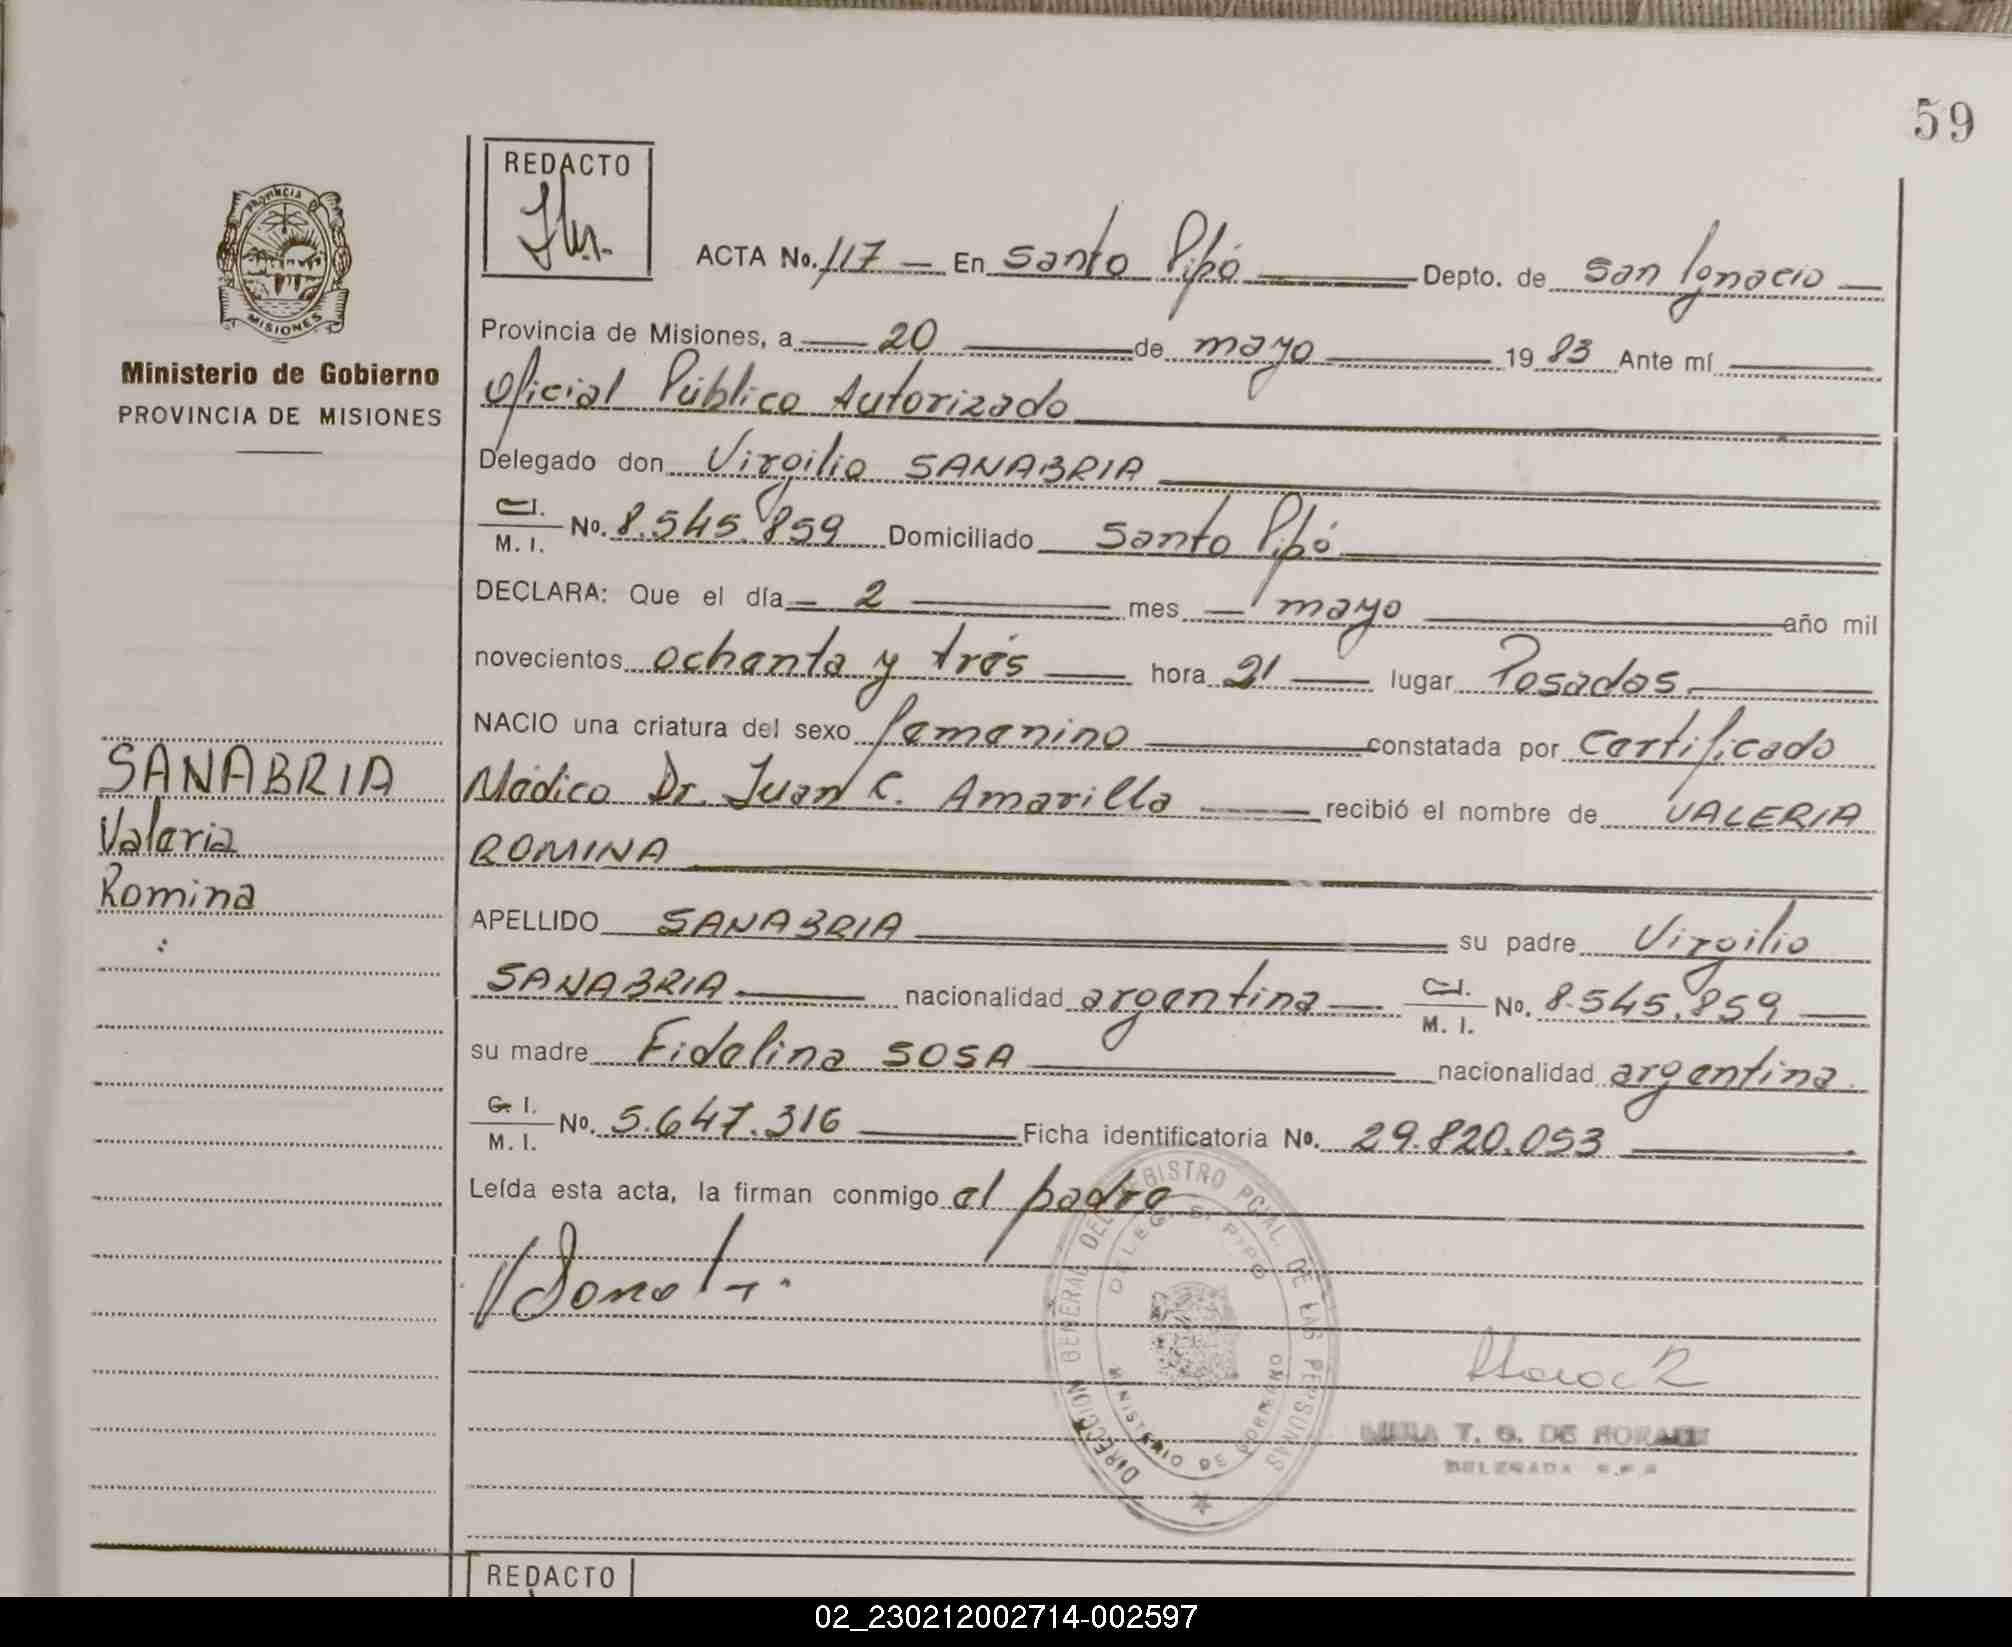 59
REDACTO
PROVINCIA DE MISIONES
Ministerio de Gobierno
PROVINCIA DE MISIONES
ACTA No. 117 — En Santo Pipó — Depto. de San Ignacio —
Provincia de Misiones, a — 20 — de mayo — 19 83 Ante mí —
Oficial Público Autorizado
Delegado don Virgilio SANABRIA
C.I. M. I. No. 8.545.859 Domiciliado Santo Pipó
DECLARA: Que el día — 2 — mes — mayo — año mil
novecientos ochenta y trés — hora 21 — lugar Posadas. —
NACIO una criatura del sexo femenino — constatada por Certificado
Médico Dr. Juan C. Amarilla — recibió el nombre de VALERIA
ROMINA
SANABRIA
Valeria
Romina
APELLIDO SANABRIA — su padre Virgilio
SANABRIA — nacionalidad argentina — C.I. M. I. No. 8.545.859 —
su madre Fidelina SOSA — nacionalidad argentina.
C. I. M. I. No. 5.647.316 — Ficha identificatoria No. 29.820.053 —
Leída esta acta, la firman conmigo el padre
DIRECCION GENERAL DEL REGISTRO PCIAL. DE LAS PERSONAS
DELEG. Sº PIPO
MINISTERIO DE GOBIERNO
T. G. DE
DELEGADA
REDACTO
02_230212002714-002597